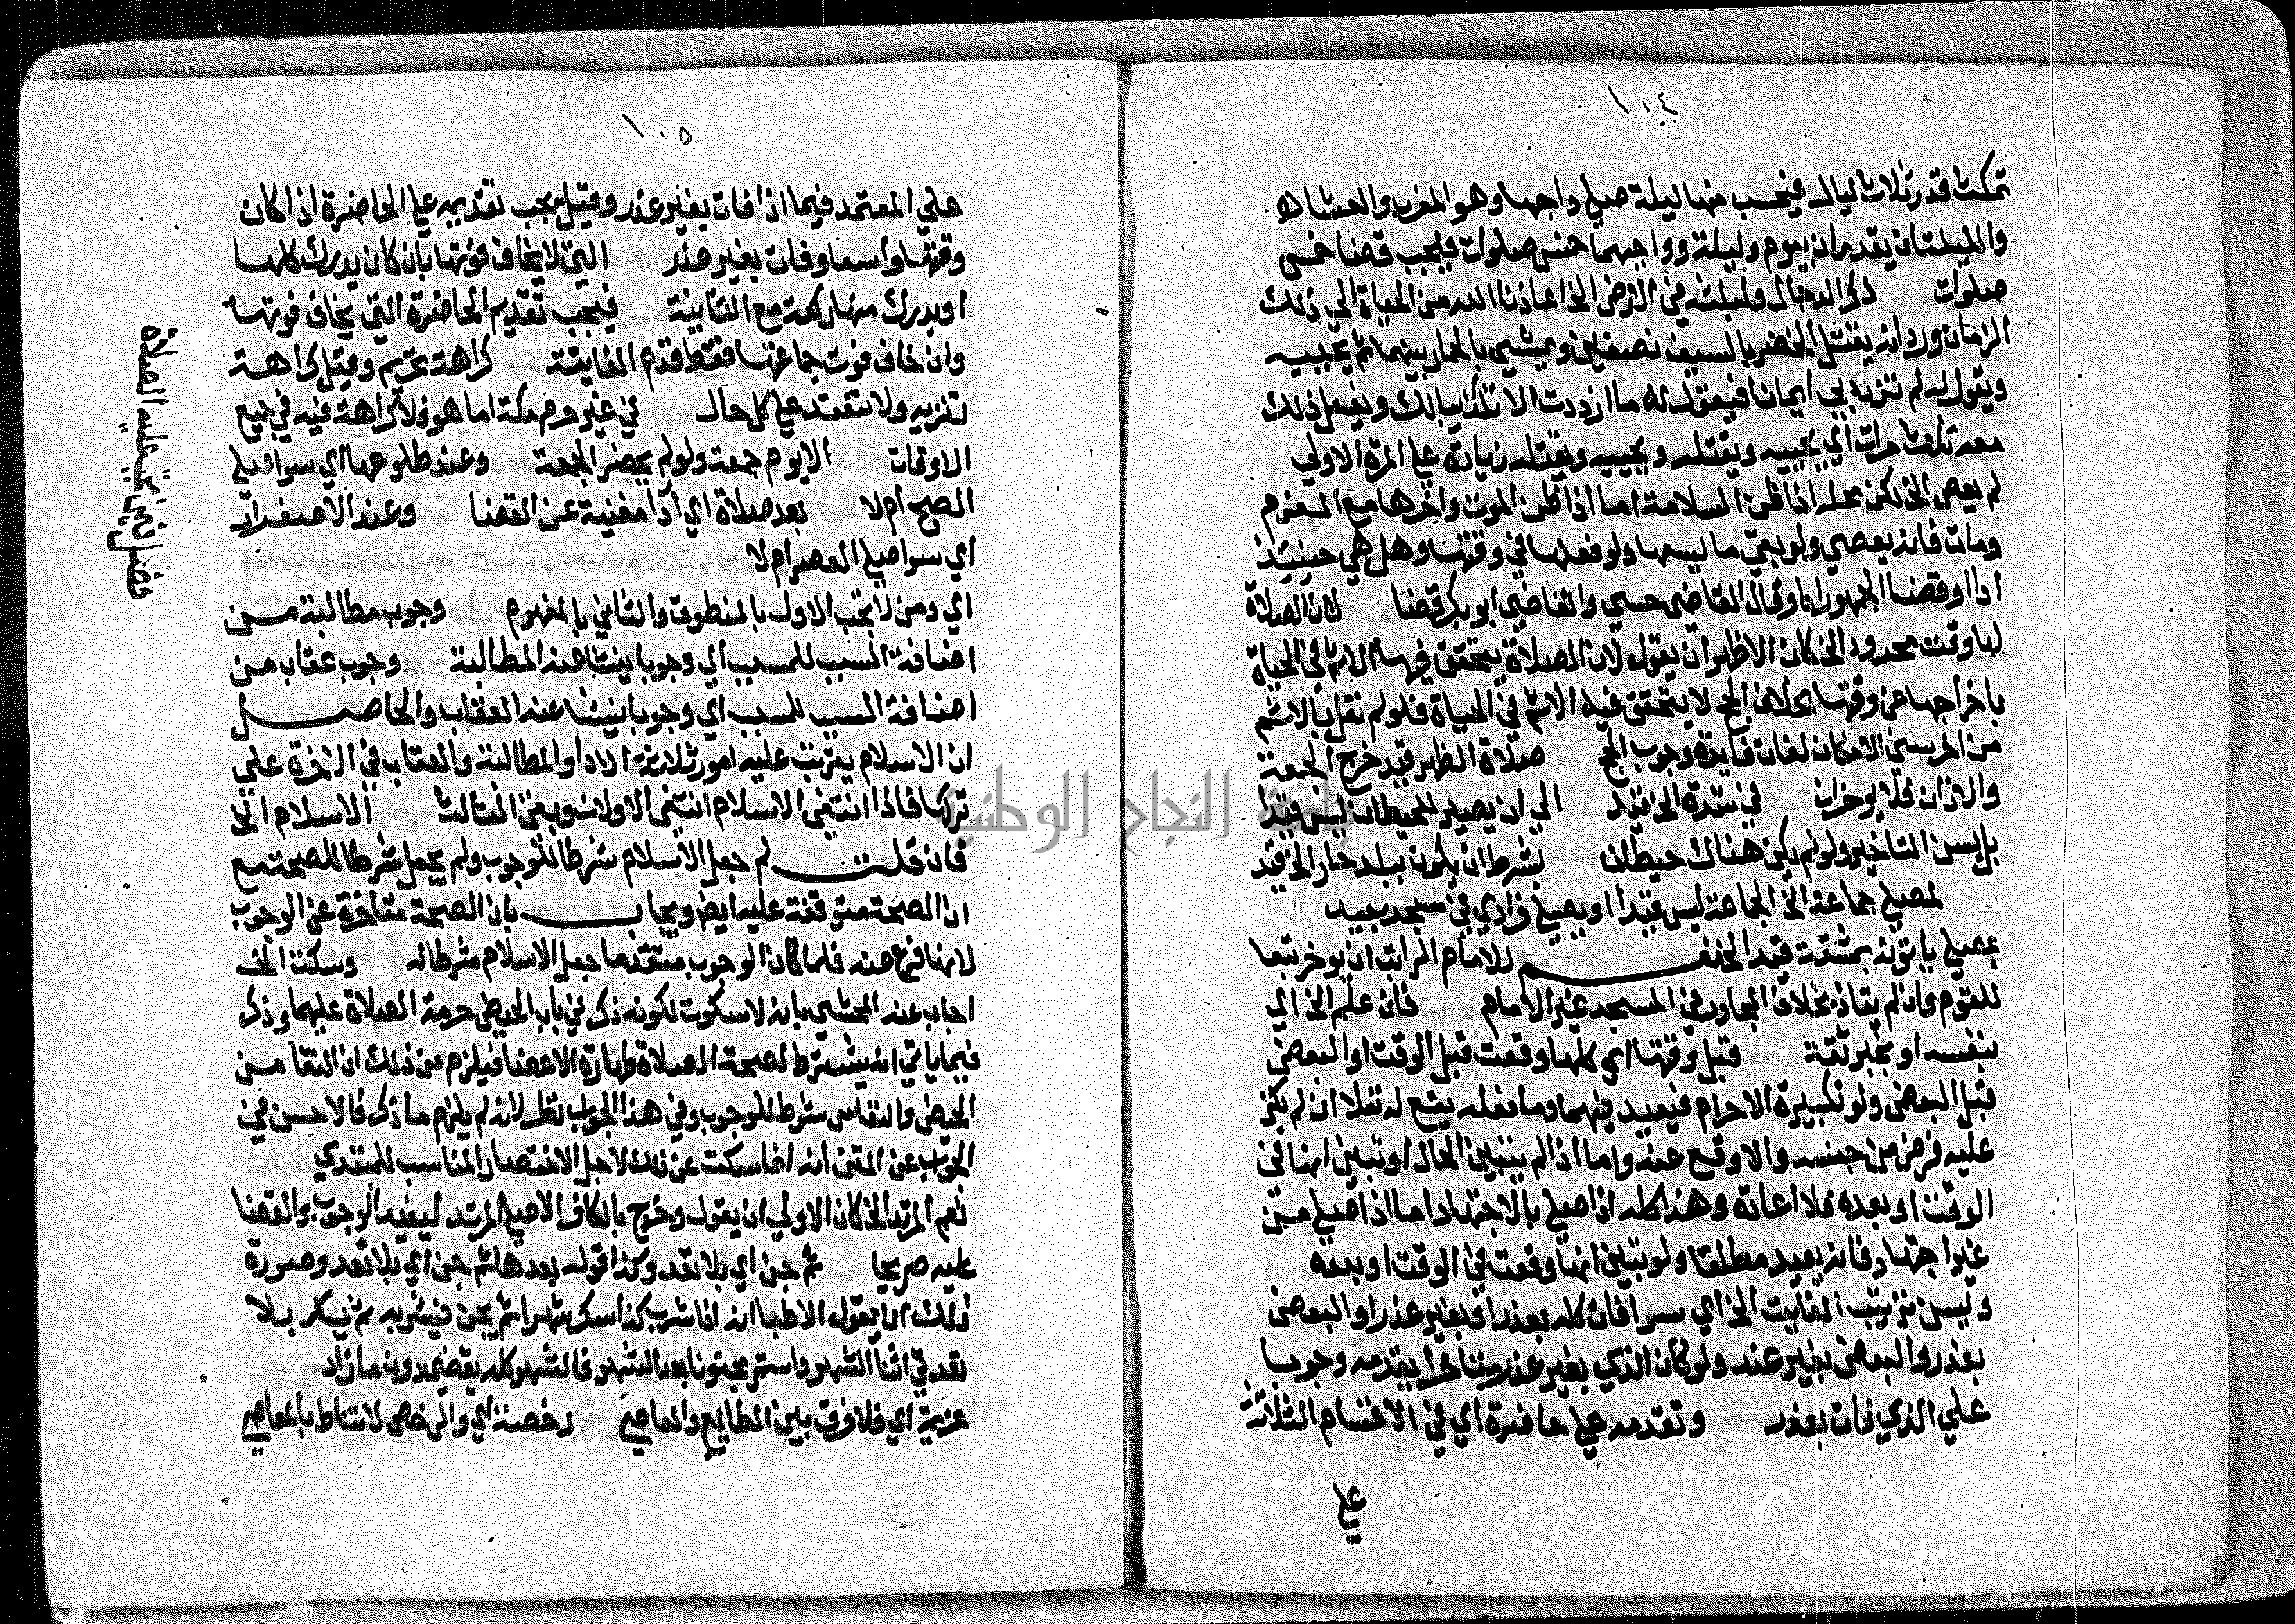 ١٠٤
تمكث قدر ثلاث ليال فيحسب منها ليلة صبح واجبها وهو المغرب والعشاء
والليلتان يقدران بيوم وليلة وواجبهما خمس صلوات فيجب قضا خمس
صلوات ذكر الدجال ولبثه في الارض الخ اعاذنا الله من الحياة الى ذلك
الزمان ورد انه يقتل الخضر بالسيف نصفين ويمشي بالحمار بينهما ثم يحييه
ويقول له لم تزد بي ايمانا فيقول له ما ازددت الا تكذيبا لك ويفعل ذلك
معه ثلاث مرات اي يحييه ويقتله ويحييه ويقتله زيادة على المرة الاولى
لم يعص الخ لكن محله اذا ظن السلامة اما اذا ظن الموت واخرها مع العزم
ومات فانه يعصي ولو بقي ما يسعها ولو فعلها في وقتها وهل هي حينئذ
ادا او قضا الجمهور ادا وقال القاضي حسين والقاضي ابو بكر قضا لان الصلاة
لها وقت محدود الخ كان الاظهر ان يقول لان الصلاة يتحقق فيها الاثم في الحياة
باخراجها عن وقتها بخلاف الحج لا يتحقق فيه الاثم في الحياة فلو لم نقل بالاثم
من اخر سني الامكان لفات فايدة وجوب الحج صلاة الظهر قيد خرج الجمعة
والاذان فلا يوخران في شدة الخ قيد الى ان يصير للحيطان ليس قيدا
بل يسن التاخير ولو لم يكن هناك حيطان بشرط ان يكون ببلد حار الخ قيد
لمصلي جماعة الخ الجماعة ليس قيدا او يصلي فرادى في مسجد بعيد
بمصلي ياتونه بمشقة قيد الخ نعم للامام الراتب ان يوخر تبعا
للقوم وان لم يتاذ بخلاف المجاور في المسجد غير الامام فان علم الخ اي
بنفسه او بخبر ثقة قبل وقتها اي كلها وقعت قبل الوقت او البعض
قبل البعض ولو تكبيرة الاحرام فيعيد فيهما وما فعله يقع له نفلا ان لم يكن
عليه فرض من جنسه والا وقع عنه واما اذا لم يتبين الحال او تبين انها في
الوقت او بعده فلا اعادة وهذا كله اذا صلى بالاجتهاد اما اذا صلى من
غير اجتهاد فانه يعيد مطلقا ولو تبين انها وقعت في الوقت او بعده
وليسن ترتيب الفايت الخ اي سوا فات كله بعذر او بغير عذر او البعض
بعذر والبعض بغير عذر ولو كان الذي بغير عذر متاخرا يقدمه وجوبا
على الذي فات بعذر وتقدمه على حاضرة اي في الاقسام الثلاثة
على
١٠٥
على المعتمد فيما اذا فات بغير عذر وقيل يجب تقديمه على الحاضرة اذا كان
وقتها واسعا وفات بغير عذر التي لا يخاف فوتها بان كان يدرك كلها
او يدرك منها ركعة مع الثانية فيجب تقديم الحاضرة التي يخاف فوتها
وان خاف فوت جماعتها فقط قدم الفايتة كراهة تحريم وقيل كراهة
تنزيه ولا تنعقد على كل حال في غير حرم مكة اما هو فلا كراهة فيه في جميع
الاوقات الا يوم جمعة ولو لم يحضر الجمعة وعند طلوعها اي سوا صلى
الصبح ام لا بعد صلاة اي ادا مغنية عن القضا وعند الاصفرار
اي سوا صلى العصر ام لا
اي ومن لا تجب الاول بالمنطوق والثاني بالمفهوم وجوب مطالبة من
اضافة السبب للمسبب اي وجوبا ينشا عنه المطالبة وجوب عقاب من
اضافة السبب للمسبب اي وجوبا ينشا عنه العقاب والحاصل
ان الاسلام يترتب عليه امور ثلاثة الادا والمطالبة والعقاب في الاخرة على
تركها فاذا انتفى الاسلام انتفى الاولان وبقي الثالث الاسلام الخ
فان قلت لم جعل الاسلام شرطا للوجوب ولم يجعل شرطا للصحة مع
ان الصحة متوقفة عليه ايض ويجاب بان الصحة متاخرة عن الوجوب
لانها فرع عنه فلما كان الوجوب متقدما جعل الاسلام شرطا له وسكت الخ
اجاب عنه المحشي بانه لا سكوت لكونه ذكر في باب الحيض حرمة الصلاة عليهما وذكر
فيما ياتي انه يشترط لصحة الصلاة طهارة الاعضا فيلزم من ذلك ان النقا من
الحيض والنفاس شرط للوجوب وفي هذا الجواب نظر لانه لم يلزم ما ذكر فالاحسن في
الجواب عن المتن انه انما سكت عن ذلك لاجل الاختصار المناسب للمبتدي
نعم المرتد الخ كان الاولى ان يقول وخرج بالكافر الاصلي المرتد ليفيد الوجوب والقضا
عليه صريحا ثم جن اي بلا تعد وكذا قوله بعدها ثم جن اي بلا تعد وصورة
ذلك ان يقول الاطبا انه اذا شرب كذا سكر شهرا ثم يجن فيشربه ثم يسكر بلا
تعد في اثنا الشهر واستمر مجنونا بعد الشهر فالشهر كله يقضى دون ما زاد
عزيمة اي فلا فرق بين المطايع والعاصي رخصة اي والرخص لا تناط بالمعاصي
فصل فيمن تجب عليه الصلاة
جامعة النجاح الوطنية